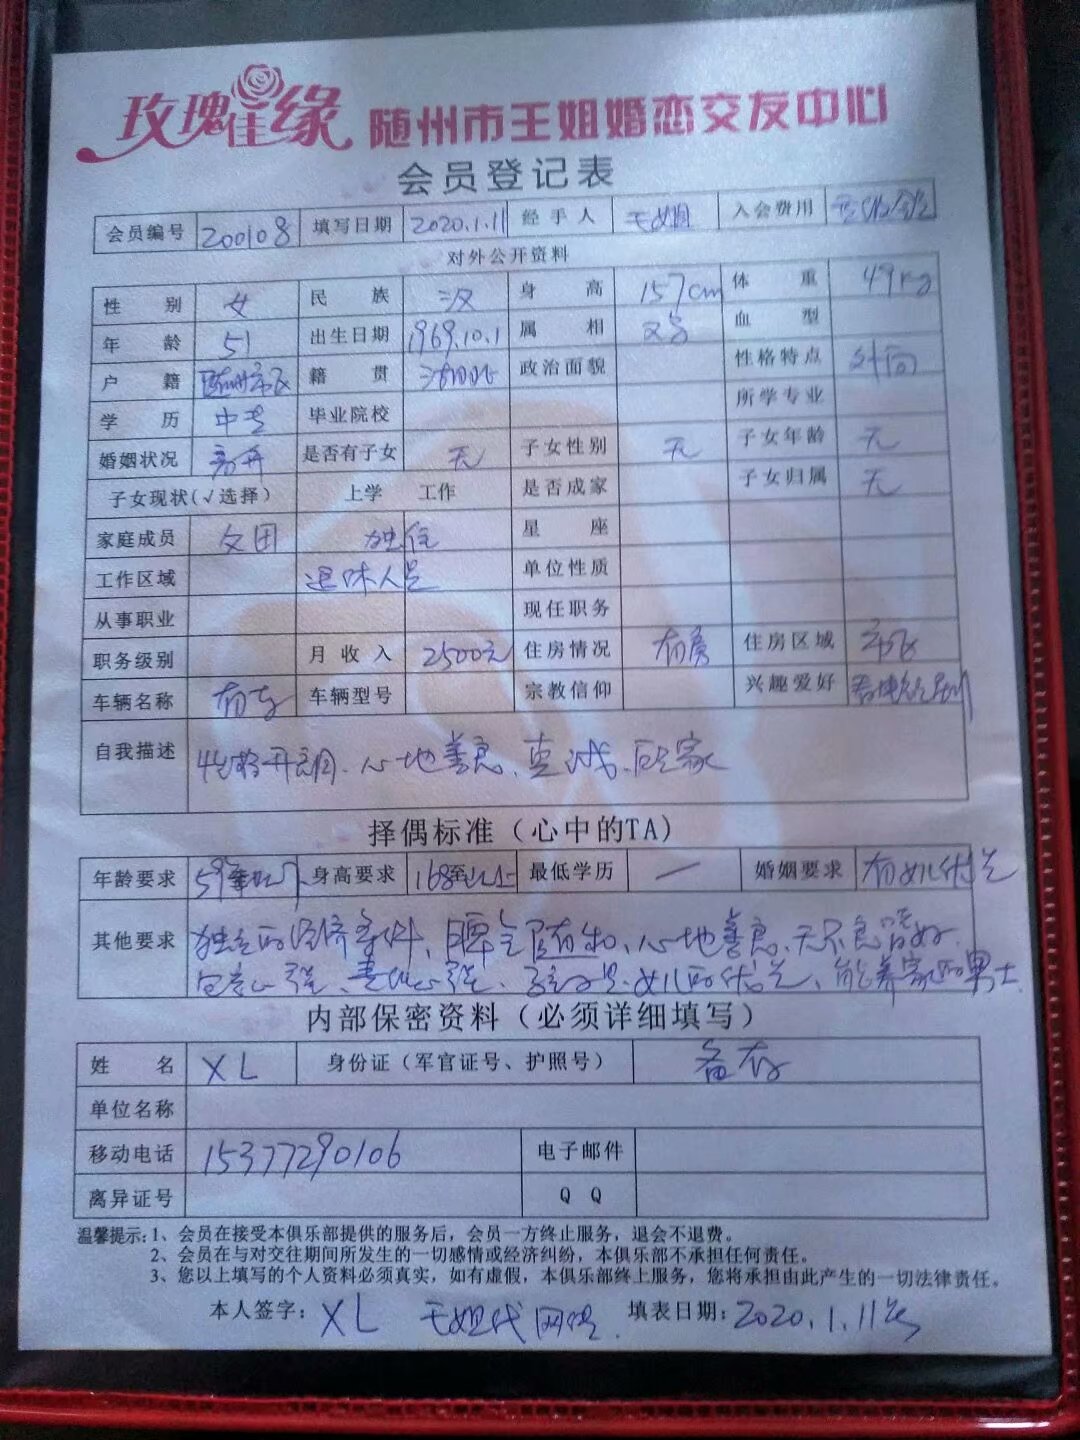 玫瑰佳缘 随州市王姐婚恋交友中心
会员登记表
会员编号 200108 填写日期 2020.1.11 经手人 王姐 入会费用
对外公开资料
性别 女 民族 汉 身高 157cm 体重 49kg
年龄 51 出生日期 1969.10.1 属相 血型
户籍 随州市区 籍贯 湖北 政治面貌 性格特点 外向
学历 中专 毕业院校 所学专业
婚姻状况 离异 是否有子女 无 子女性别 无 子女年龄 无
子女现状(√选择) 上学 工作 是否成家 子女归属 无
家庭成员 独住 星座
工作区域 退休人员 单位性质
从事职业 现任职务
职务级别 月收入 2500元 住房情况 有房 住房区域 市区
车辆名称 有车 车辆型号 宗教信仰 兴趣爱好
自我描述 性格开朗、心地善良、真诚、顾家
择偶标准（心中的TA）
年龄要求 身高要求 168至以上 最低学历 — 婚姻要求 有女儿优先
其他要求 独立的经济条件、脾气随和、心地善良、无不良嗜好、
包容心强、责任心强、孩子是女儿的优先、能养家的男士
内部保密资料（必须详细填写）
姓名 XL 身份证（军官证号、护照号） 备存
单位名称
移动电话 15377290106 电子邮件
离异证号 QQ
温馨提示:1、会员在接受本俱乐部提供的服务后，会员一方终止服务，退会不退费。
2、会员在与对交往期间所发生的一切感情或经济纠纷，本俱乐部不承担任何责任。
3、您以上填写的个人资料必须真实，如有虚假，本俱乐部终上服务，您将承担由此产生的一切法律责任。
本人签字: XL 王姐代 填表日期: 2020.1.11号